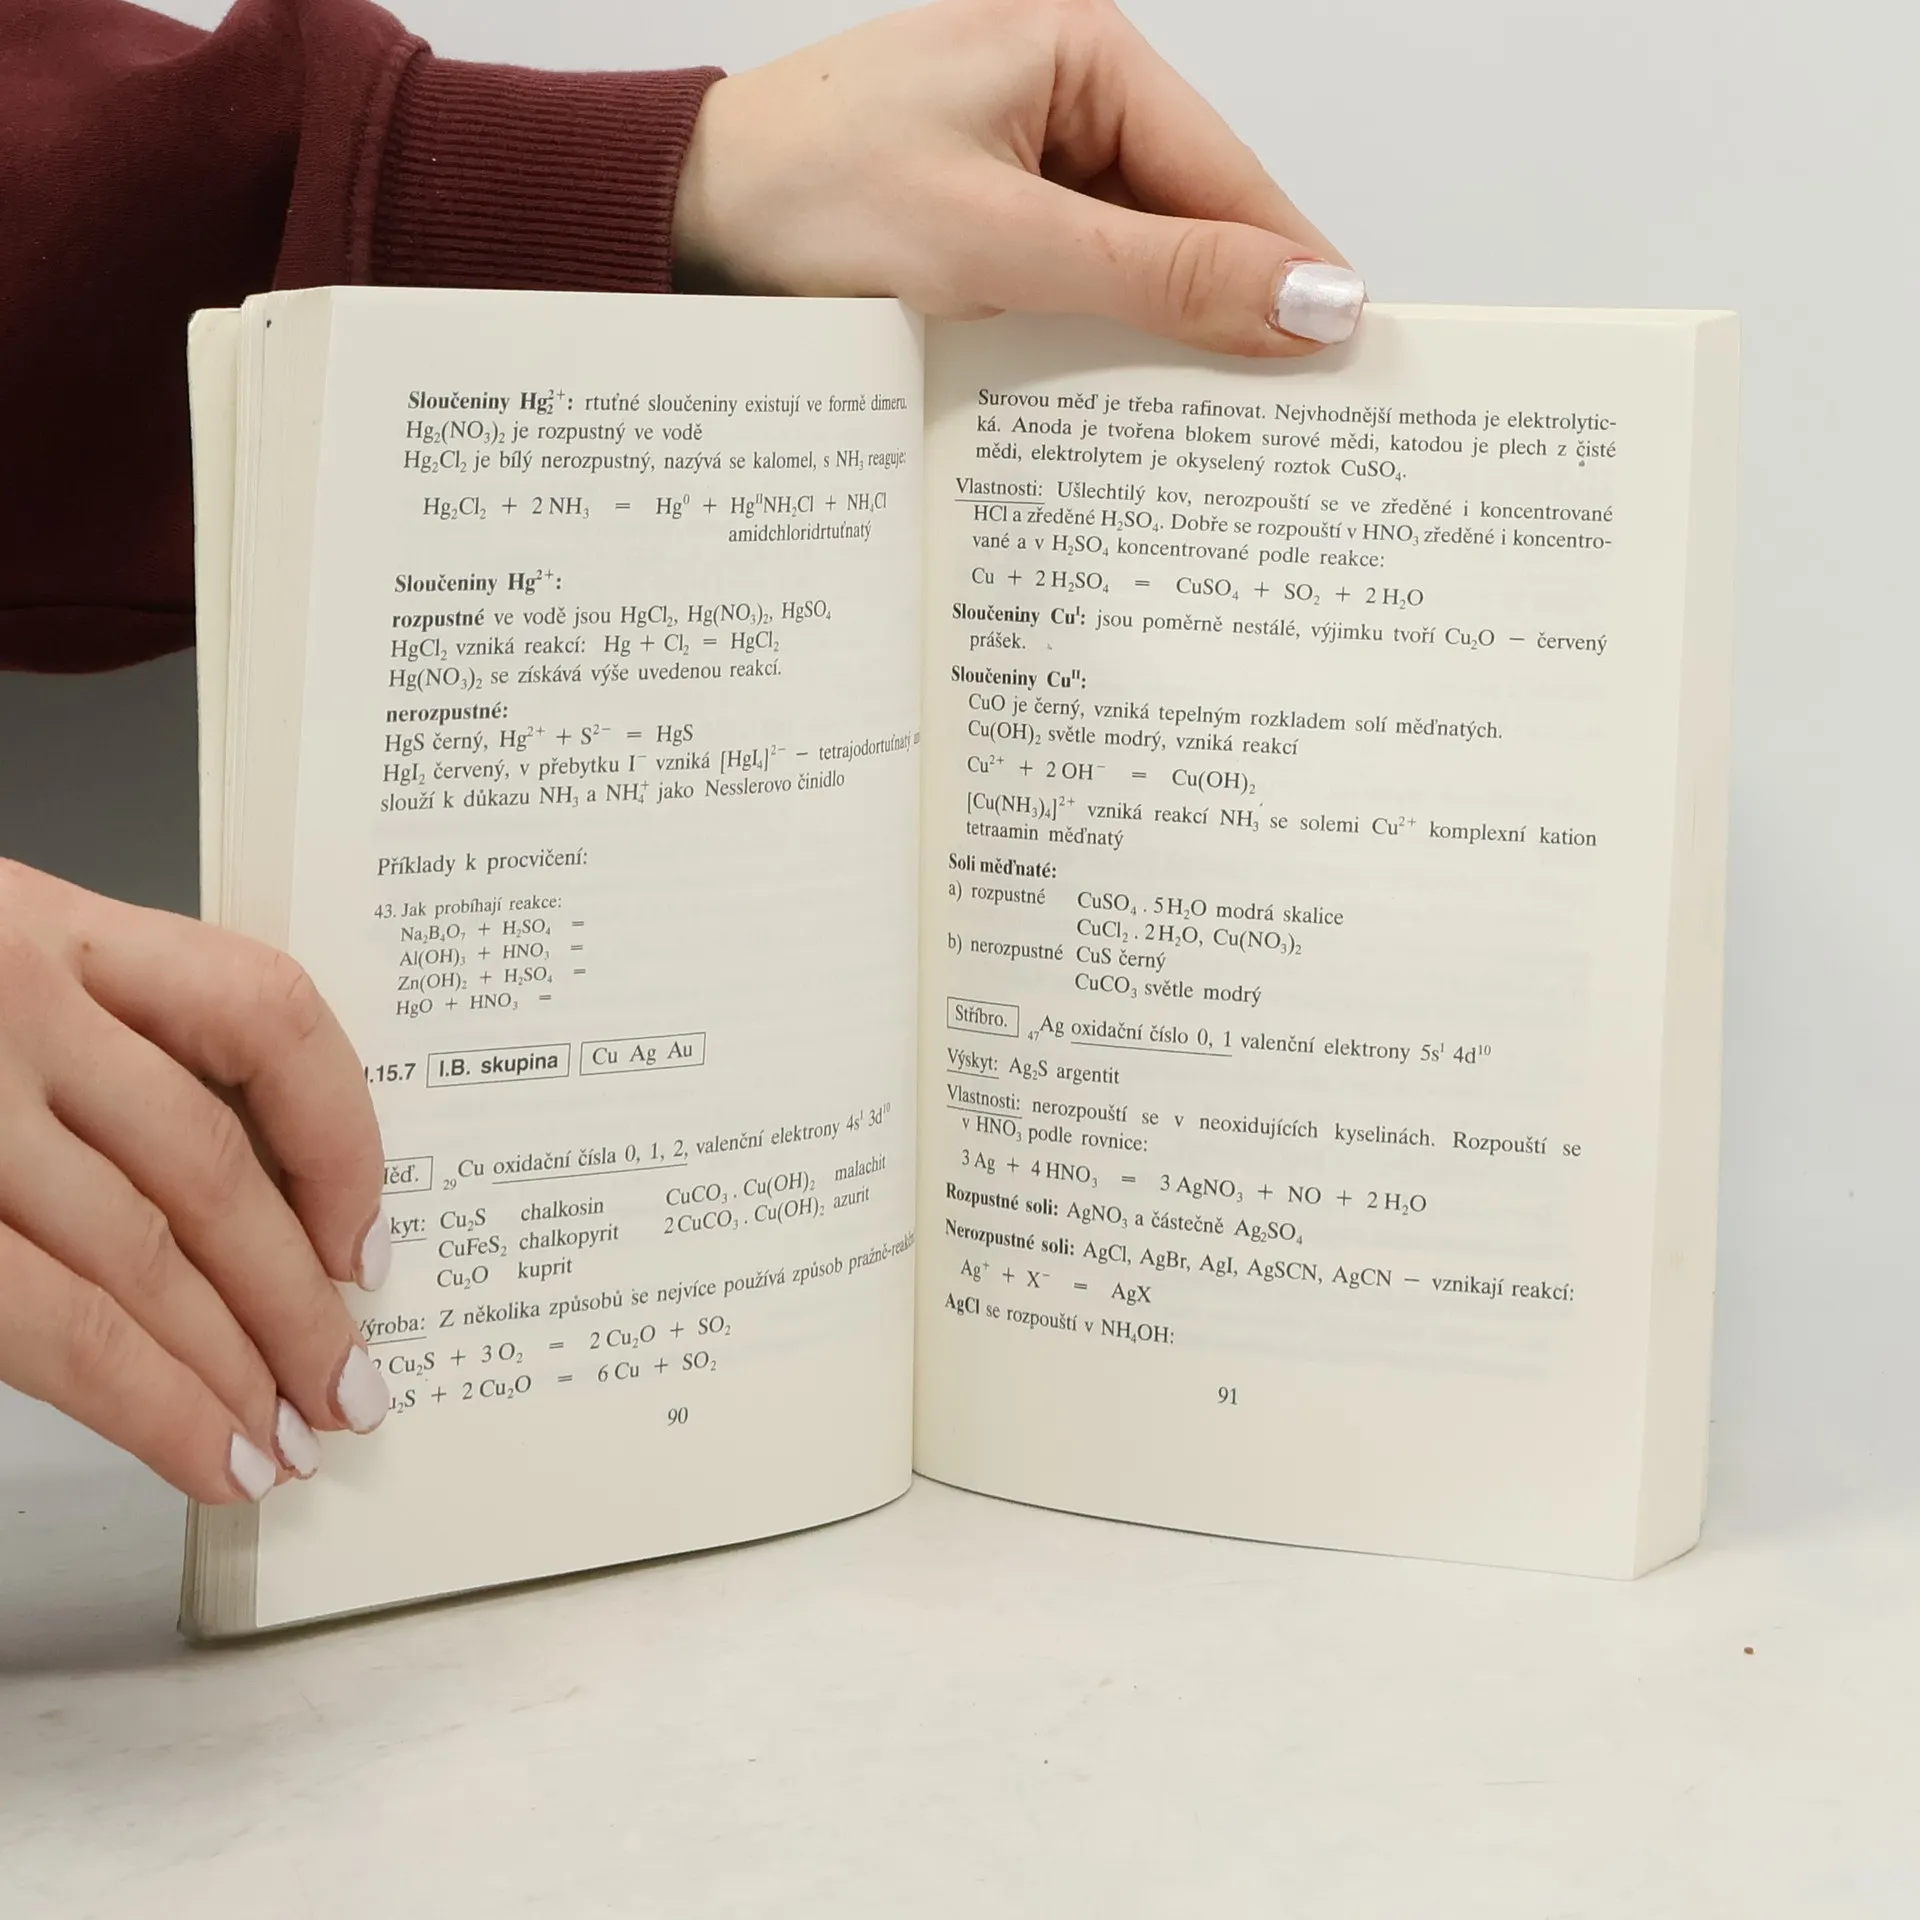 Sloučeniny Hg₂²⁺: rtuťné sloučeniny existují ve formě dimeru.
Hg₂(NO₃)₂ je rozpustný ve vodě
Hg₂Cl₂ je bílý nerozpustný, nazývá se kalomel, s NH₃ reaguje:
Hg₂Cl₂ + 2 NH₃ = Hg⁰ + HgᴵᴵNH₂Cl + NH₄Cl
amidchloridrtuťnatý
Sloučeniny Hg²⁺:
rozpustné ve vodě jsou HgCl₂, Hg(NO₃)₂, HgSO₄
HgCl₂ vzniká reakcí: Hg + Cl₂ = HgCl₂
Hg(NO₃)₂ se získává výše uvedenou reakcí.
nerozpustné:
HgS černý, Hg²⁺ + S²⁻ = HgS
HgI₂ červený, v přebytku I⁻ vzniká [HgI₄]²⁻ – tetrajodortuťnatý
slouží k důkazu NH₃ a NH₄⁺ jako Nesslerovo činidlo
Příklady k procvičení:
43. Jak probíhají reakce:
Na₂B₄O₇ + H₂SO₄ =
Al(OH)₃ + HNO₃ =
Zn(OH)₂ + H₂SO₄ =
HgO + HNO₃ =
.15.7 I.B. skupina Cu Ag Au
ěď. ₂₉Cu oxidační čísla 0, 1, 2, valenční elektrony 4s¹ 3d¹⁰
kyt: Cu₂S chalkosin CuCO₃ . Cu(OH)₂ malachit
CuFeS₂ chalkopyrit 2 CuCO₃ . Cu(OH)₂ azurit
Cu₂O kuprit
ýroba: Z několika způsobů se nejvíce používá způsob pražně-reakč
2 Cu₂S + 3 O₂ = 2 Cu₂O + SO₂
u₂S + 2 Cu₂O = 6 Cu + SO₂
90
Surovou měď je třeba rafinovat. Nejvhodnější methoda je elektrolytic-
ká. Anoda je tvořena blokem surové mědi, katodou je plech z čisté
mědi, elektrolytem je okyselený roztok CuSO₄.
Vlastnosti: Ušlechtilý kov, nerozpouští se ve zředěné i koncentrované
HCl a zředěné H₂SO₄. Dobře se rozpouští v HNO₃ zředěné i koncentro-
vané a v H₂SO₄ koncentrované podle reakce:
Cu + 2 H₂SO₄ = CuSO₄ + SO₂ + 2 H₂O
Sloučeniny Cuᴵ: jsou poměrně nestálé, výjimku tvoří Cu₂O – červený
prášek.
Sloučeniny Cuᴵᴵ:
CuO je černý, vzniká tepelným rozkladem solí měďnatých.
Cu(OH)₂ světle modrý, vzniká reakcí
Cu²⁺ + 2 OH⁻ = Cu(OH)₂
[Cu(NH₃)₄]²⁺ vzniká reakcí NH₃ se solemi Cu²⁺ komplexní kation
tetraamin měďnatý
Soli měďnaté:
a) rozpustné CuSO₄ . 5 H₂O modrá skalice
CuCl₂ . 2 H₂O, Cu(NO₃)₂
b) nerozpustné CuS černý
CuCO₃ světle modrý
Stříbro. ₄₇Ag oxidační číslo 0, 1 valenční elektrony 5s¹ 4d¹⁰
Výskyt: Ag₂S argentit
Vlastnosti: nerozpouští se v neoxidujících kyselinách. Rozpouští se
v HNO₃ podle rovnice:
3 Ag + 4 HNO₃ = 3 AgNO₃ + NO + 2 H₂O
Rozpustné soli: AgNO₃ a částečně Ag₂SO₄
Nerozpustné soli: AgCl, AgBr, AgI, AgSCN, AgCN – vznikají reakcí:
Ag⁺ + X⁻ = AgX
AgCl se rozpouští v NH₄OH:
91